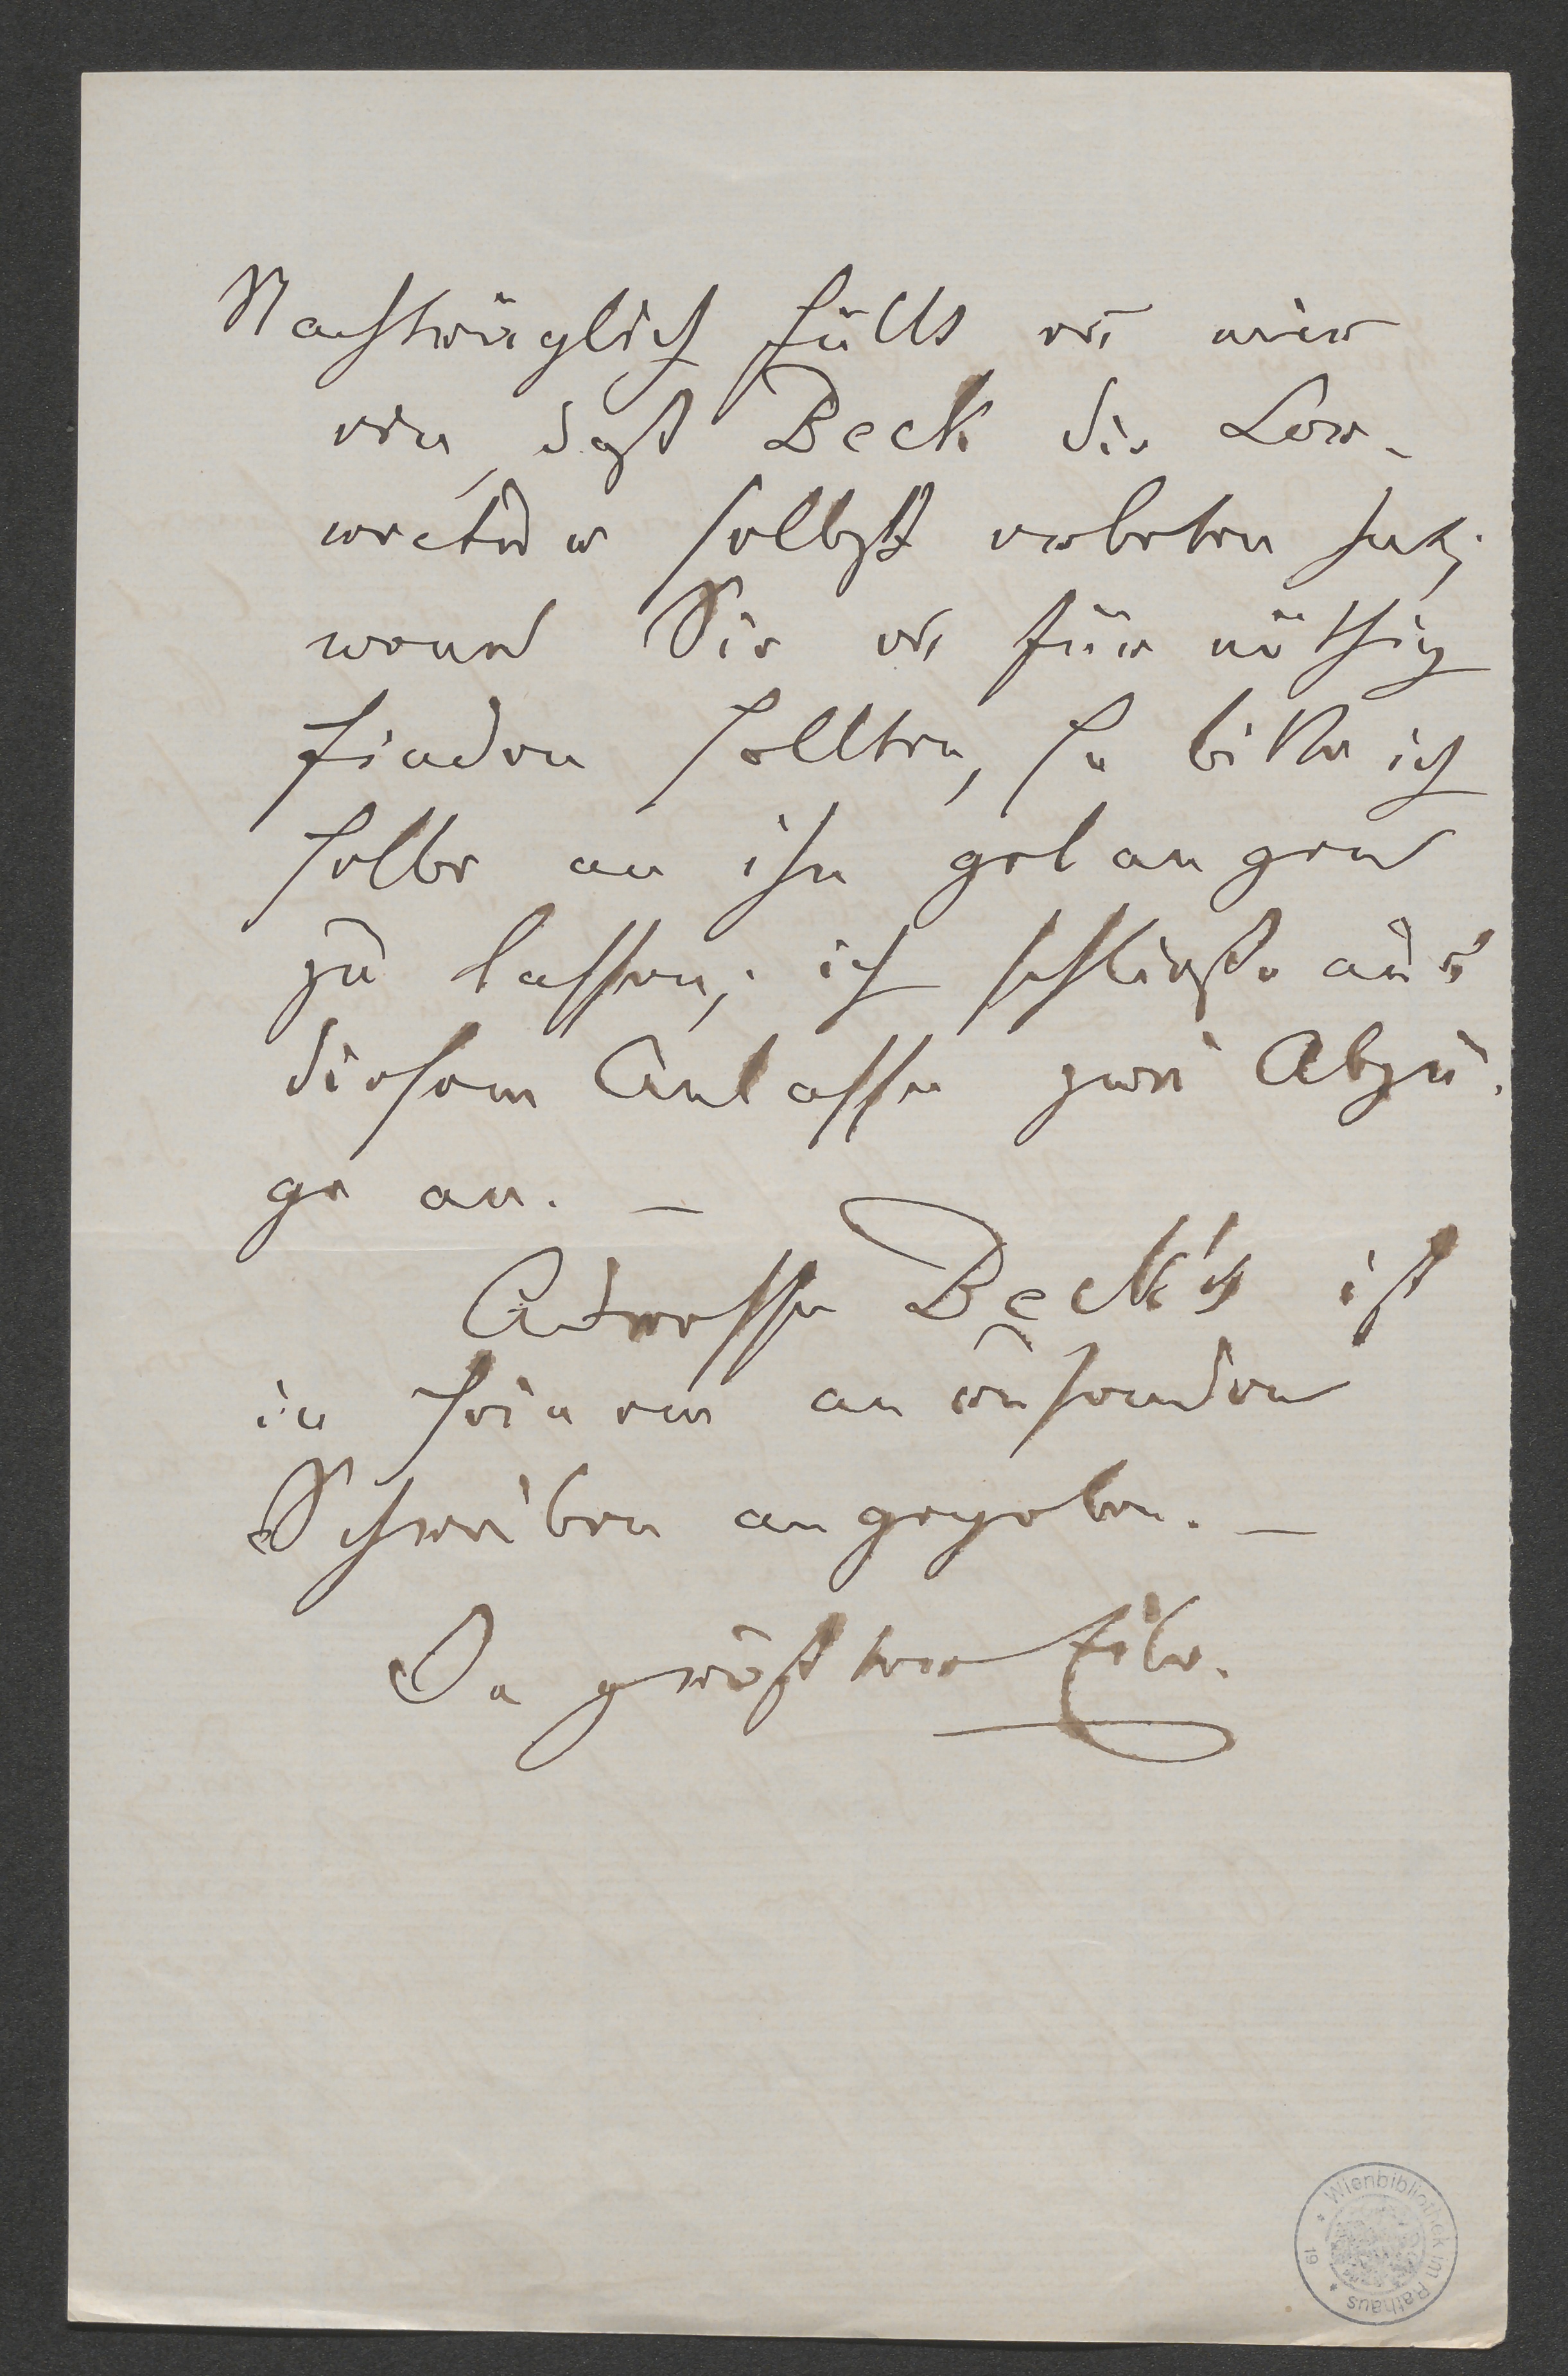 Nachträglich fällts mir
ein, daß Beck die Cor-
rectur selbst erbeten hat;
wenn Sie es für nöthig
finden sollten, so bitte ich
selbe an ihn gelangen
zu lassen; ich schließe aus
diesem Anlasse zwei Abzü-
ge an. —
Adresse Beck's ist
in seinem anruhenden
Schreiben angegeben. —
In größter Eile.
Wienbibliothek im Rathaus
19